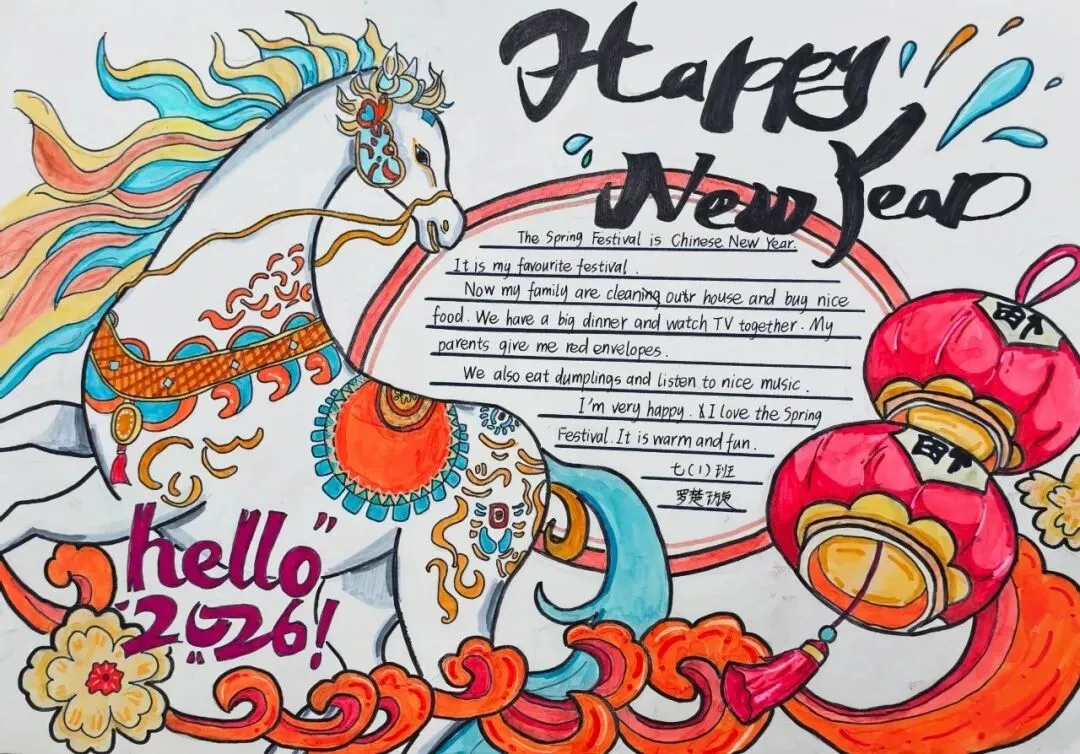 Happy
New Year
The Spring Festival is Chinese New Year.
It is my favourite festival.
Now my family are cleaning outr house and buy nice
food. We have a big dinner and watch TV together. My
parents give me red envelopes.
We also eat dumplings and listen to nice music.
I'm very happy. I love the Spring
Festival. It is warm and fun.
七(1)班
罗楚
hello
2026!